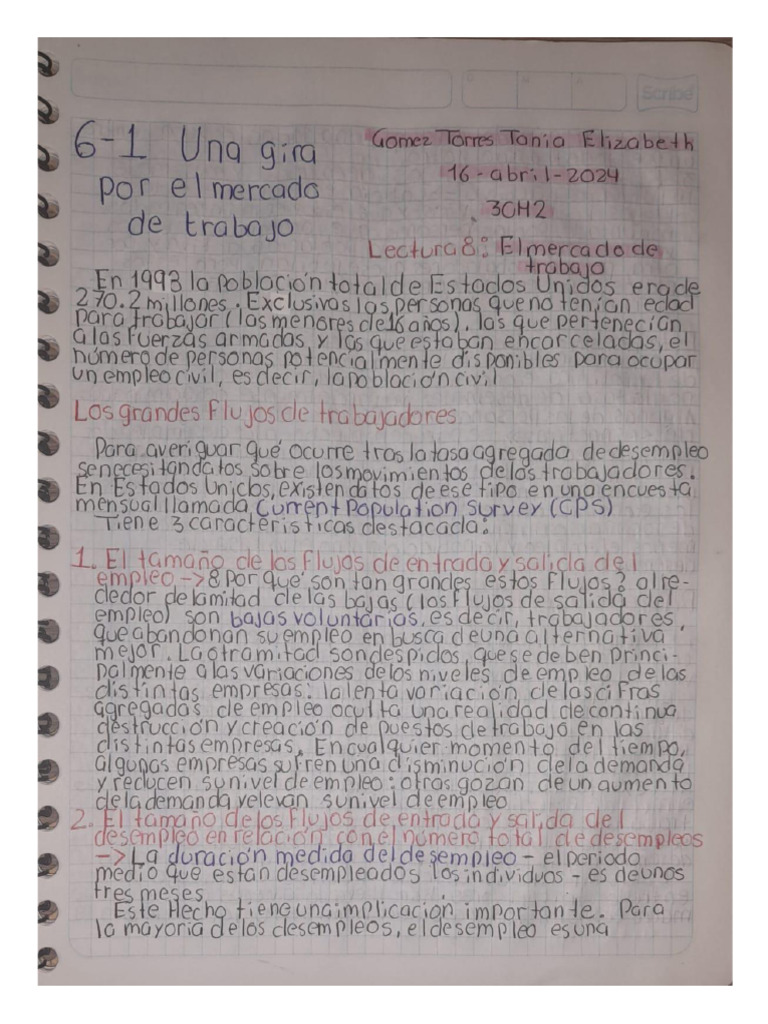 Scribe
6-1 Una gira
por el mercado
de trabajo
Gomez Torres Tania Elizabeth
16-abril-2024
3CM2
Lectura 8: El mercado de
trabajo
En 1993 la población total de Estados Unidos era de
270.2 millones. Exclusivas las personas que no tenían edad
para trabajar (las menores de 16 años), las que pertenecían
a las fuerzas armadas, y las que estaban encarceladas, el
número de personas potencialmente disponibles para ocupar
un empleo civil, es decir, la población civil
Los grandes flujos de trabajadores
Para averiguar qué ocurre tras la tasa agregada de desempleo
se necesitan datos sobre los movimientos de los trabajadores.
En Estados Unidos, existen datos de ese tipo en una encuesta
mensual llamada Current Population Survey (CPS)
Tiene 3 características destacada:
1. El tamaño de los flujos de entrada y salida del
empleo -> 8 Por qué son tan grandes estos flujos? alre-
dedor de la mitad de las bajas (los flujos de salida del
empleo) son bajas voluntarias, es decir, trabajadores,
que abandonan su empleo en busca de una alternativa
mejor. La otra mitad son despidos, que se deben princi-
palmente a las variaciones de los niveles de empleo de las
distintas empresas: la lenta variación de las cifras
agregadas de empleo oculta una realidad de continua
destrucción y creación de puestos de trabajo en las
distintas empresas. En cualquier momento del tiempo,
algunas empresas sufren una disminución de la demanda
y reducen su nivel de empleo: otras gozan de un aumento
de la demanda y elevan su nivel de empleo
2. El tamaño de los flujos de entrada y salida del
desempleo en relación con el número total de desempleos
-> La duración medida del desempleo - el periodo
medio que están desempleados los individuos - es de unos
tres meses
Este Hecho tiene una implicación importante. Para
la mayoría de los desempleos, el desempleo es una